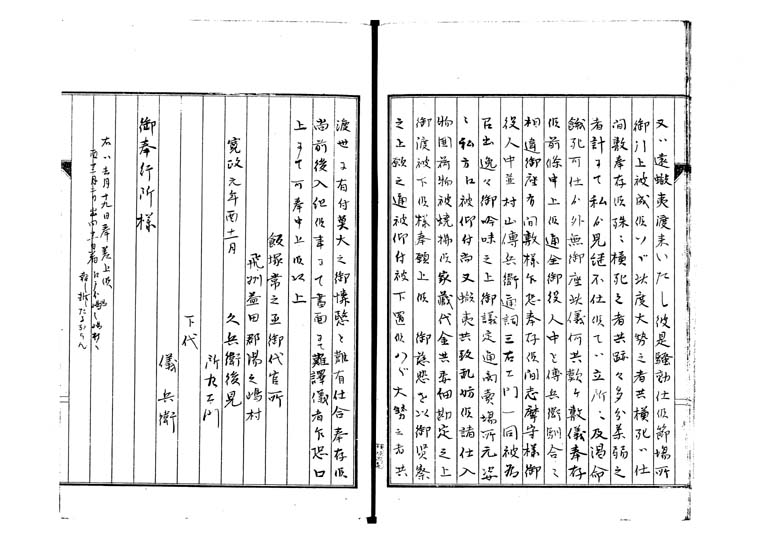 又ハ遠蝦夷渡来いたし彼是騒動仕候節場所
御引上被成候ハヾ此度大勢之者共横死ハ仕
間敷奉存候殊ニ横死之者共跡々多分若弱之
者計ニて私か見継不仕候てハ立所ニ及渇命
餓死可仕か外無御座此儀何共歎ケ敷儀奉存
候前條申上候通全御役人中と傳兵衛馴合ニ
相違御座有間敷様乍恐奉存候間志摩守様御
役人中並村山傳兵衛通詞三右エ門一同被為
召出逸々御吟味之上御議定通商賣場所元姿
ニ私方江被仰付尚又蝦夷共致乱妨候諸仕入
物囲荷物被焼捨候家蔵代金共委細勘定之上
御渡被下候様奉願上候 御慈悲を以御賢察
之上願之通被仰付被下置候ハヾ大勢之者共
渡世ニ有付莫大之御憐愍と難有仕合奉存候
尚前後入組候事ニて書面ニて難譯儀者乍恐口
上ニて可奉申上候以上
飯塚常之丞御代官所
飛州益田郡湯之嶋村
寛政元年酉十一月
久兵衛後見
所右エ門
下代
儀兵衛
御奉行所様
右ハ去月十九日奉差上候